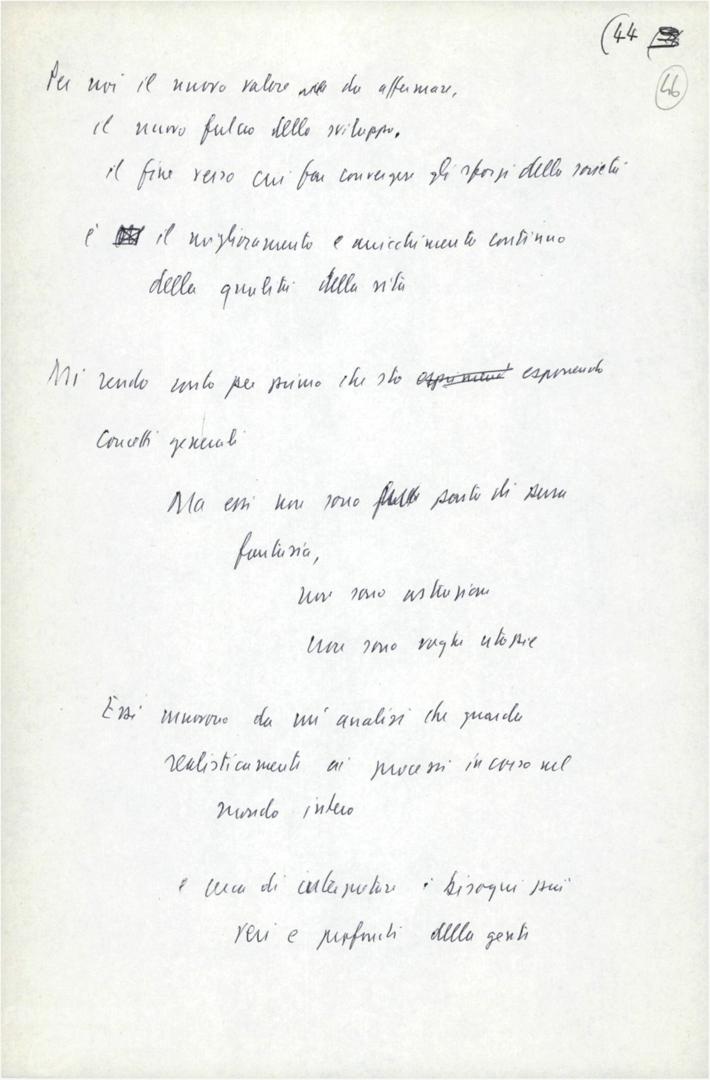 (44
46
Per noi il nuovo valore da affermare,
il nuovo fulcro dello sviluppo,
il fine verso cui far convergere gli sforzi della società
è il miglioramento e arricchimento continuo
della qualità della vita
Mi rendo conto per primo che sto esponendo
concetti generali
Ma essi non sono parto di pura
fantasia,
non sono astrazioni
non sono vaghe utopie
Essi muovono da un'analisi che guarda
realisticamente ai processi in corso nel
mondo intero
e cerca di interpretare i bisogni più
veri e profondi della gente